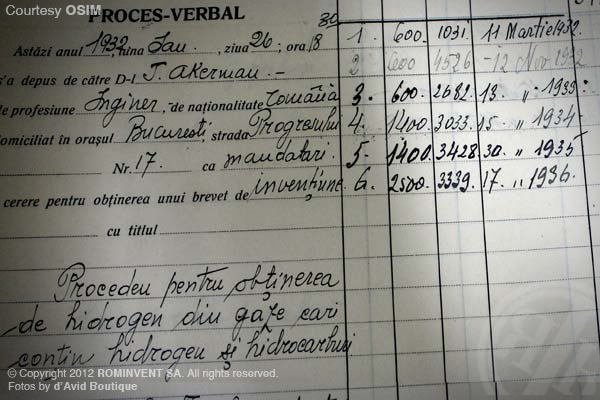 Courtesy OSIM
PROCES-VERBAL
Astăzi anul 1932, luna Ian., ziua 26, ora 18 30
s'a depus de către D-l T. Akerman.-
de profesiune Inginer, de naționalitate Română
domiciliat în orașul București, strada Progresului
Nr. 17. ca mandatari.
cerere pentru obținerea unui brevet de invențiune
cu titlul
Procedeu pentru obținerea
de hidrogen din gaze cari
conțin hidrogen și hidrocarburi
1. 600. 1031. 11 Martie 1932.
2 600 4526 - 12 Nov 1932
3. 600. 2682. 13. „ 1933.
4. 1400. 3033. 15. „ 1934
5. 1400. 3428. 30. „ 1935
6. 2500. 3339. 17. „ 1936.
© Copyright 2012 ROMINVENT SA. All rights reserved.
Fotos by d'Avid Boutique